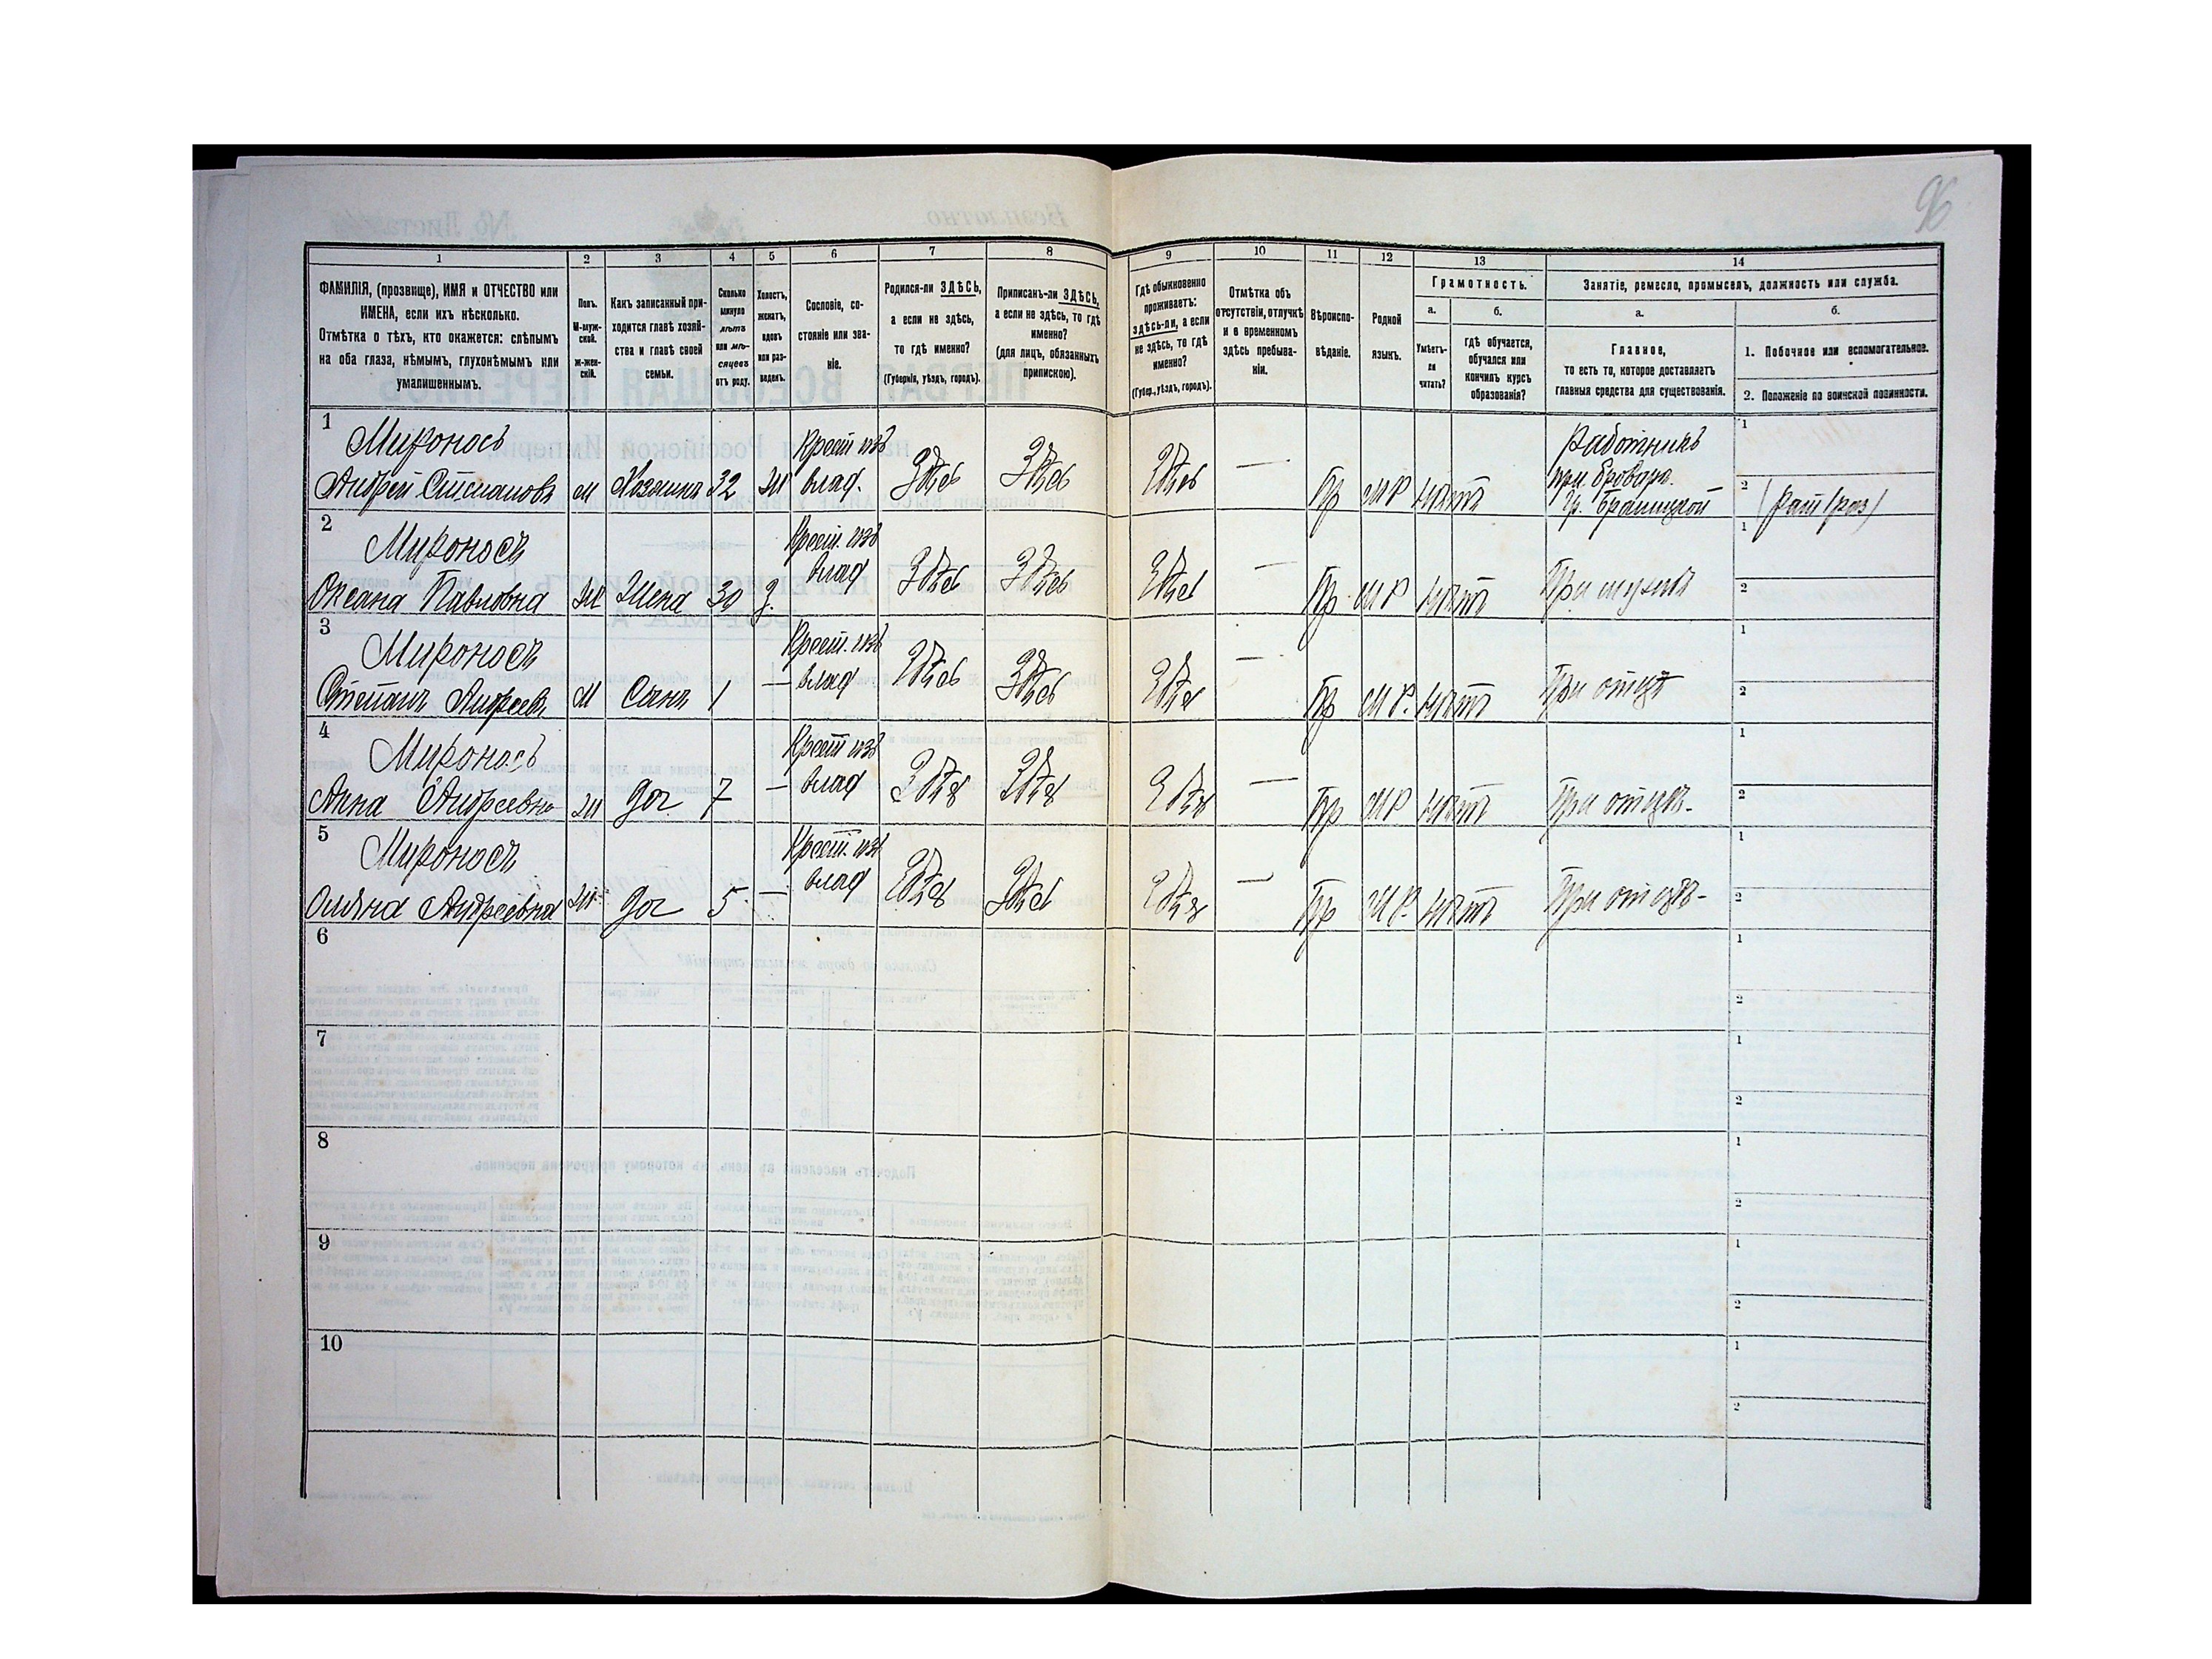 96
1 2 3 4 5 6 7 8 9 10 11 12 13 14
ФАМИЛІЯ, (прозвище), ИМЯ и ОТЧЕСТВО или
ИМЕНА, если ихъ нѣсколько.
Отмѣтка о тѣхъ, кто окажется: слѣпымъ
на оба глаза, нѣмымъ, глухонѣмымъ или
умалишеннымъ.
Полъ.
М-муж-
ской.
ж-жен-
скій.
Какъ записанный при-
ходится главѣ хозяй-
ства и главѣ своей
семьи.
Сколько
минуло
лѣтъ
или мѣ-
сяцевъ
отъ роду.
Холостъ,
женатъ,
вдовъ
или раз-
веденъ.
Сословіе, со-
стояніе или зва-
ніе.
Родился-ли ЗДѢСЬ,
а если не здѣсь,
то гдѣ именно?
(Губернія, уѣздъ, городъ).
Приписанъ-ли ЗДѢСЬ,
а если не здѣсь, то гдѣ
именно?
(для лицъ, обязанныхъ
припискою).
Гдѣ обыкновенно
проживаетъ:
здѣсь-ли, а если
не здѣсь, то гдѣ
именно?
(Губер., уѣздъ, городъ).
Отмѣтка объ
отсутствіи, отлучкѣ
и о временномъ
здѣсь пребыва-
ніи.
Вѣроиспо-
вѣданіе.
Родной
языкъ.
Грамотность.
а.
Умѣетъ-
ли
читать?
б.
гдѣ обучается,
обучался или
кончилъ курсъ
образованія?
Занятіе, ремесло, промыселъ, должность или служба.
а.
Главное,
то есть то, которое доставляетъ
главныя средства для существованія.
б.
1. Побочное или вспомогательное.
2. Положеніе по воинской повинности.
1 Миронось Крест изъ Работникъ 1
Андрей Степановъ м Хозяинъ 32 ж влад. Здѣсь Здѣсь Здѣсь — Пр МР нѣтъ при бровар. 2
гр. Браницкой
2 Мироносъ Крест. изъ 1
Оксана Павловна ж Жена 30 з. влад Здѣсь Здѣсь Здѣсь — Пр МР нѣтъ При мужѣ 2
3 Мироносъ Крест. изъ 1
Степанъ Андреевъ М Сынъ 1 — влад Здѣсь Здѣсь Здѣсь — Пр МР. нѣтъ При отцѣ 2
4 Миронось Крест изъ 1
Анна Андреевна ж доч. 7 — влад Здѣсь Здѣсь Здѣсь — Пр МР нѣтъ При отцѣ- 2
5 Мироносъ Крест. изъ 1
Оляна Андреевна ж доч 5 — влад Здѣсь Здѣсь Здѣсь — Пр МР. нѣтъ При отцѣ- 2
6 1
2
7 1
2
8 1
2
9 1
2
10 1
2